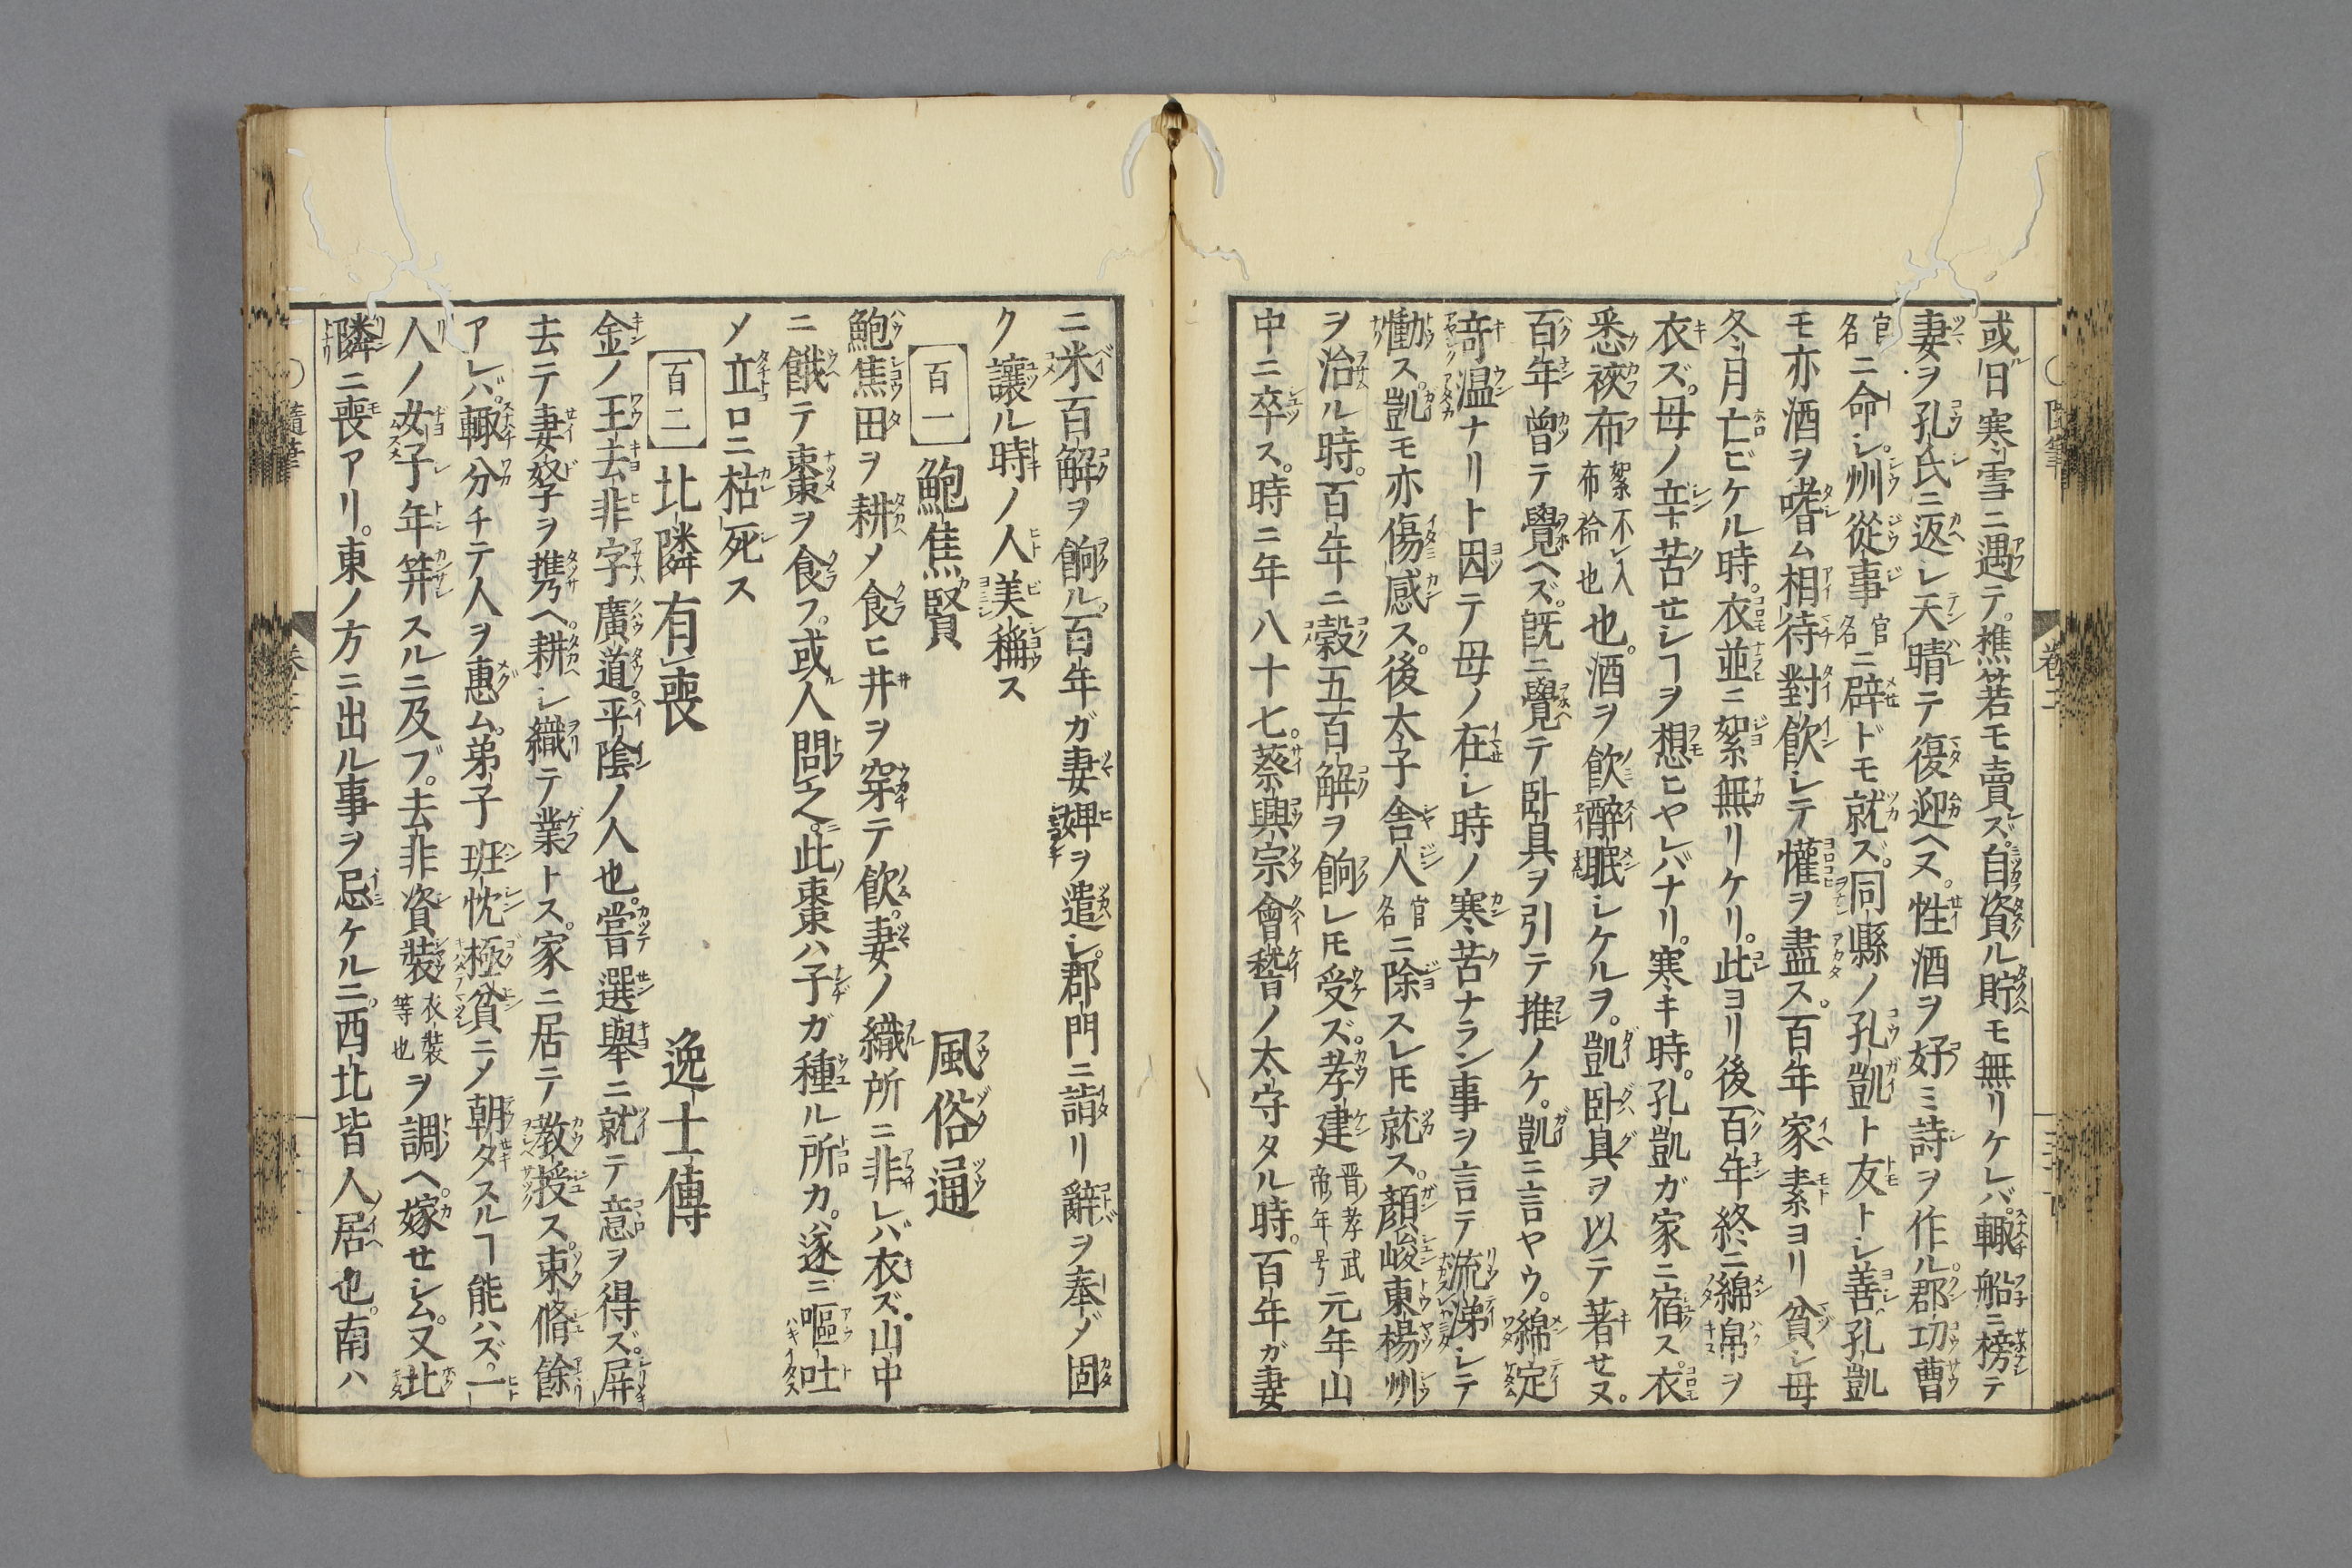 或日寒雪ニ遇テ。樵箬モ賣ズ。自資ル貯モ無リケレバ。輙船ニ榜テ
妻ヲ孔氏ニ返シ天晴テ復迎ヘヌ。性酒ヲ好ミ詩ヲ作ル。郡功曹
官名ニ命シ。州從事官名ニ辟ドモ就ズ。同縣ノ孔凱ト友トシ善。孔凱
モ亦酒ヲ嗜ム相待對飲シテ懽ヲ盡ス。百年家素ヨリ貧シ母
冬月亡ビケル時。衣並ニ絮無リケリ。此ヨリ後百年終ニ綿帛ヲ
衣ズ。母ノ辛苦セシヿヲ想ヒヤレバナリ。寒キ時。孔凱ガ家ニ宿ス。衣
悉裌布絮不レ入布袷也也。酒ヲ飲醉眠シケルヲ。凱卧具ヲ以テ著セヌ。
百年曾テ覺ヘズ。既ニ覺テ卧具ヲ引テ推ノケ。凱ニ言ヤウ。綿定
竒温ナリト因テ母ノ在シ時ノ寒苦ナラン事ヲ言テ流涕シテ
慟ス。凱モ亦傷感ス。後太子舎人官名ニ除スレ𪜈就ス。顔峻東楊州
ヲ治ル時。百年ニ穀五百解ヲ餉レ𪜈受ズ。孝建晋ノ孝武帝ノ年号元年山
中ニ卒ス。時ニ年八十七。蔡興宗會稽ノ太守タル時。百年ガ妻
ニ米百解ヲ餉ル。百年ガ妻婢ヲ遣シ。郡門ニ詣リ辭ヲ奉ゾ固
ク讓ル時ノ人美稱ス
百一 鮑焦賢 風俗通
鮑焦田ヲ耕メ食ヒ井ヲ穿テ飲。妻ノ織所ニ非レバ衣ズ。山中
ニ餓テ棗ヲ食フ。或人問之。此棗ハ子ガ種ル所カ。遂ニ嘔吐
メ立ロニ枯死ス
百二 北隣有喪 逸士傳
金ノ王去非字廣道。平陰ノ人也。嘗選舉ニ就テ意ヲ得ズ。屏
去テ妻孥ヲ携ヘ。耕シ織テ業トス。家ニ居テ教授ス。束脩餘
アレバ。輙分チテ人ヲ惠ム。弟子班忱極貧ニメ朝夕スルヿ能ハズ。一
人ノ女子年笄スルニ及ブ。去非資裝衣裝等也ヲ調ヘ。嫁セシム。又北
隣ニ喪アリ。東ノ方ニ出ル事ヲ忌ケルニ。西北皆人居也。南ハ